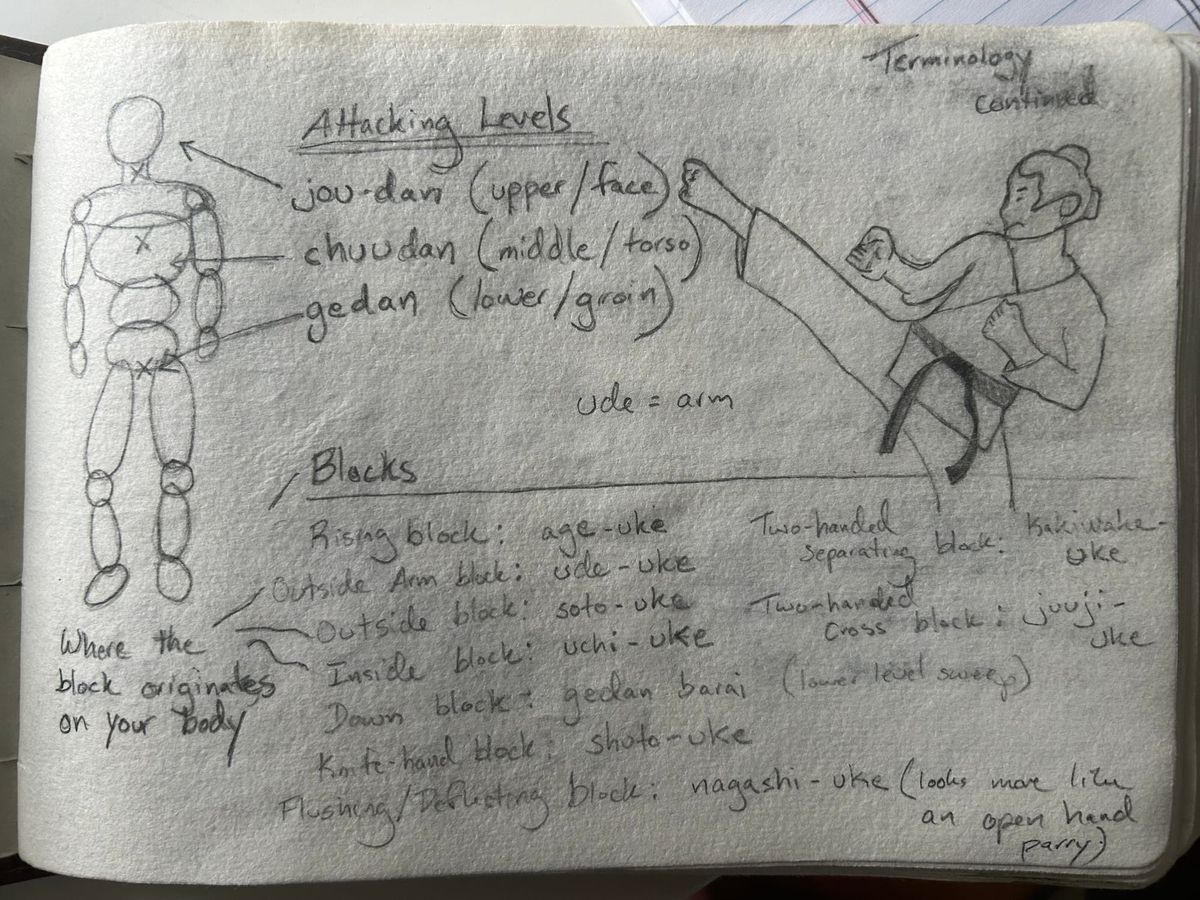 Terminology
continued
Attacking Levels
jou-dan (upper/face)
chuudan (middle/torso)
gedan (lower/groin)
ude = arm
Blocks
Rising block: age-uke
Outside Arm block: ude-uke
Outside block: soto-uke
Inside block: uchi-uke
Down block: gedan barai (lower level sweep)
Knife-hand block: shuto-uke
Flushing/Deflecting block: nagashi-uke (looks more like
an open hand
parry.)
Two-handed
separating block: Kakiwake-
uke
Two-handed
cross block: juuji-
uke
Where the
block originates
on your body